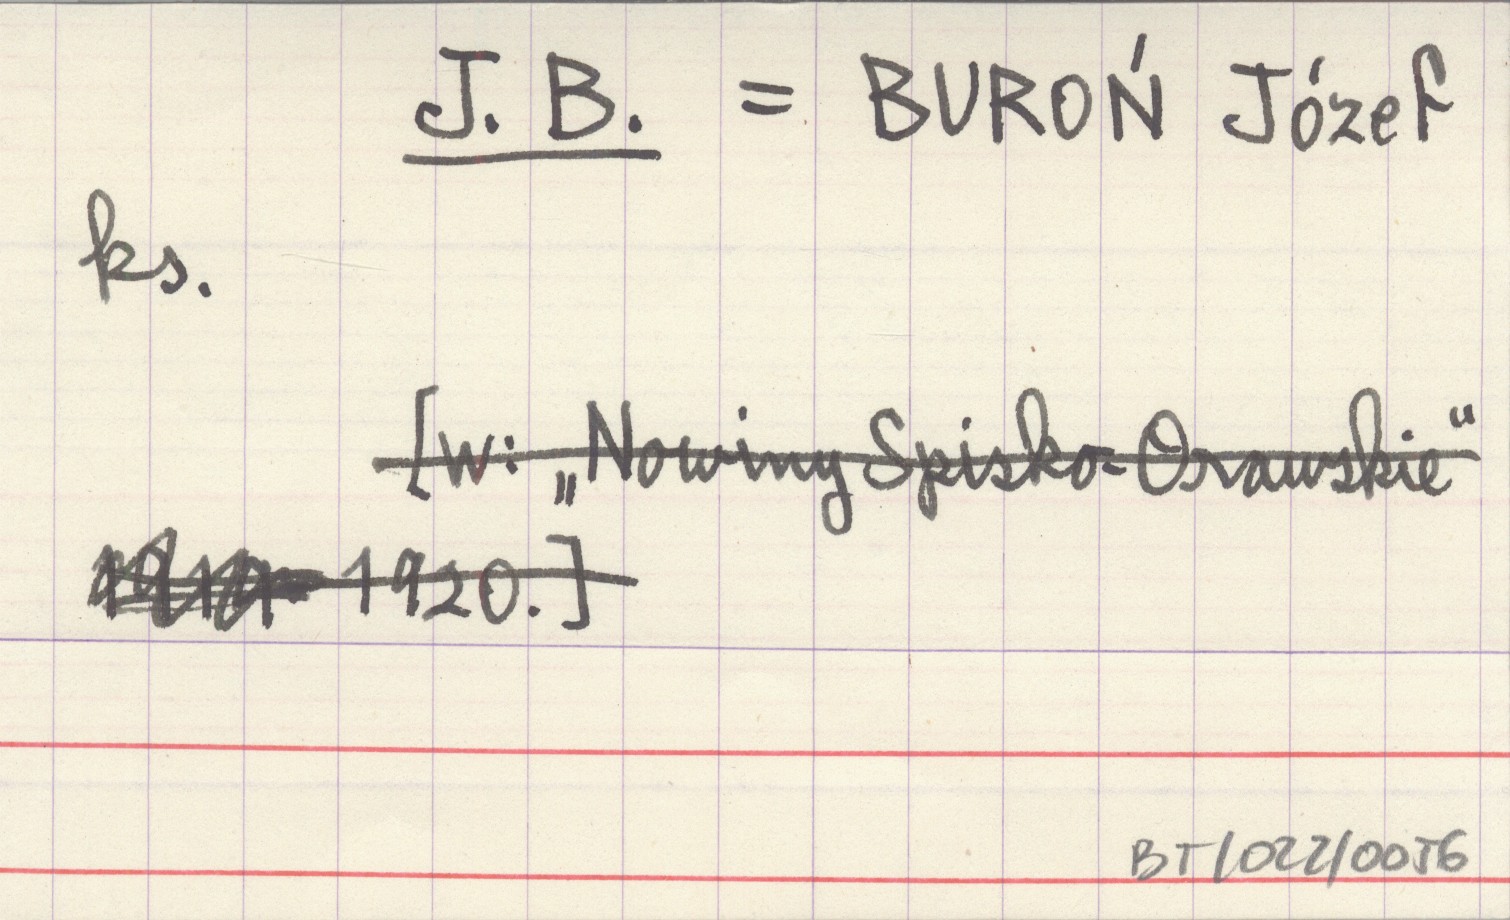 J. B. = BUROŃ Józef
ks.
[w: „Nowiny Spisko-Orawskie"
1920.]
BT/022/0056